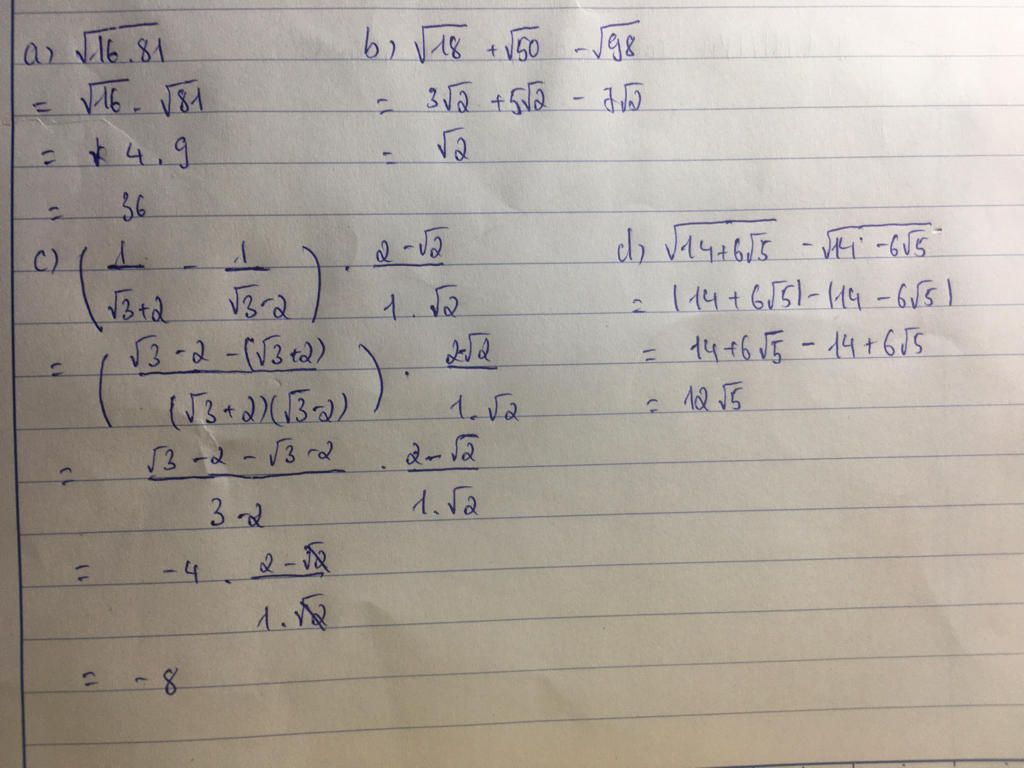 a) √16.81
= √16 . √81
= 4 . 9
= 36
b) √18 + √50 - √98
= 3√2 + 5√2 - 7√2
= √2
c) (1/(√3+2) - 1/(√3-2)) . (2-√2)/(1.√2)
= ((√3-2-(√3+2))/((√3+2)(√3-2))) . (2-√2)/(1.√2)
= (√3-2-√3-2)/(3-2) . (2-√2)/(1.√2)
= -4 . (2-√2)/(1.√2)
= -8
d) √(14+6√5) - √(14-6√5)
= (14+6√5)-(14-6√5)
= 14+6√5 - 14+6√5
= 12√5